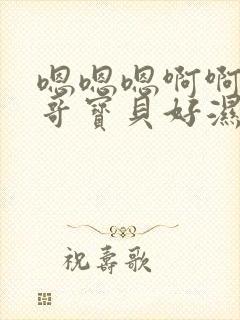 嗯嗯嗯啊啊
哥宝貝好濕
祝壽歌